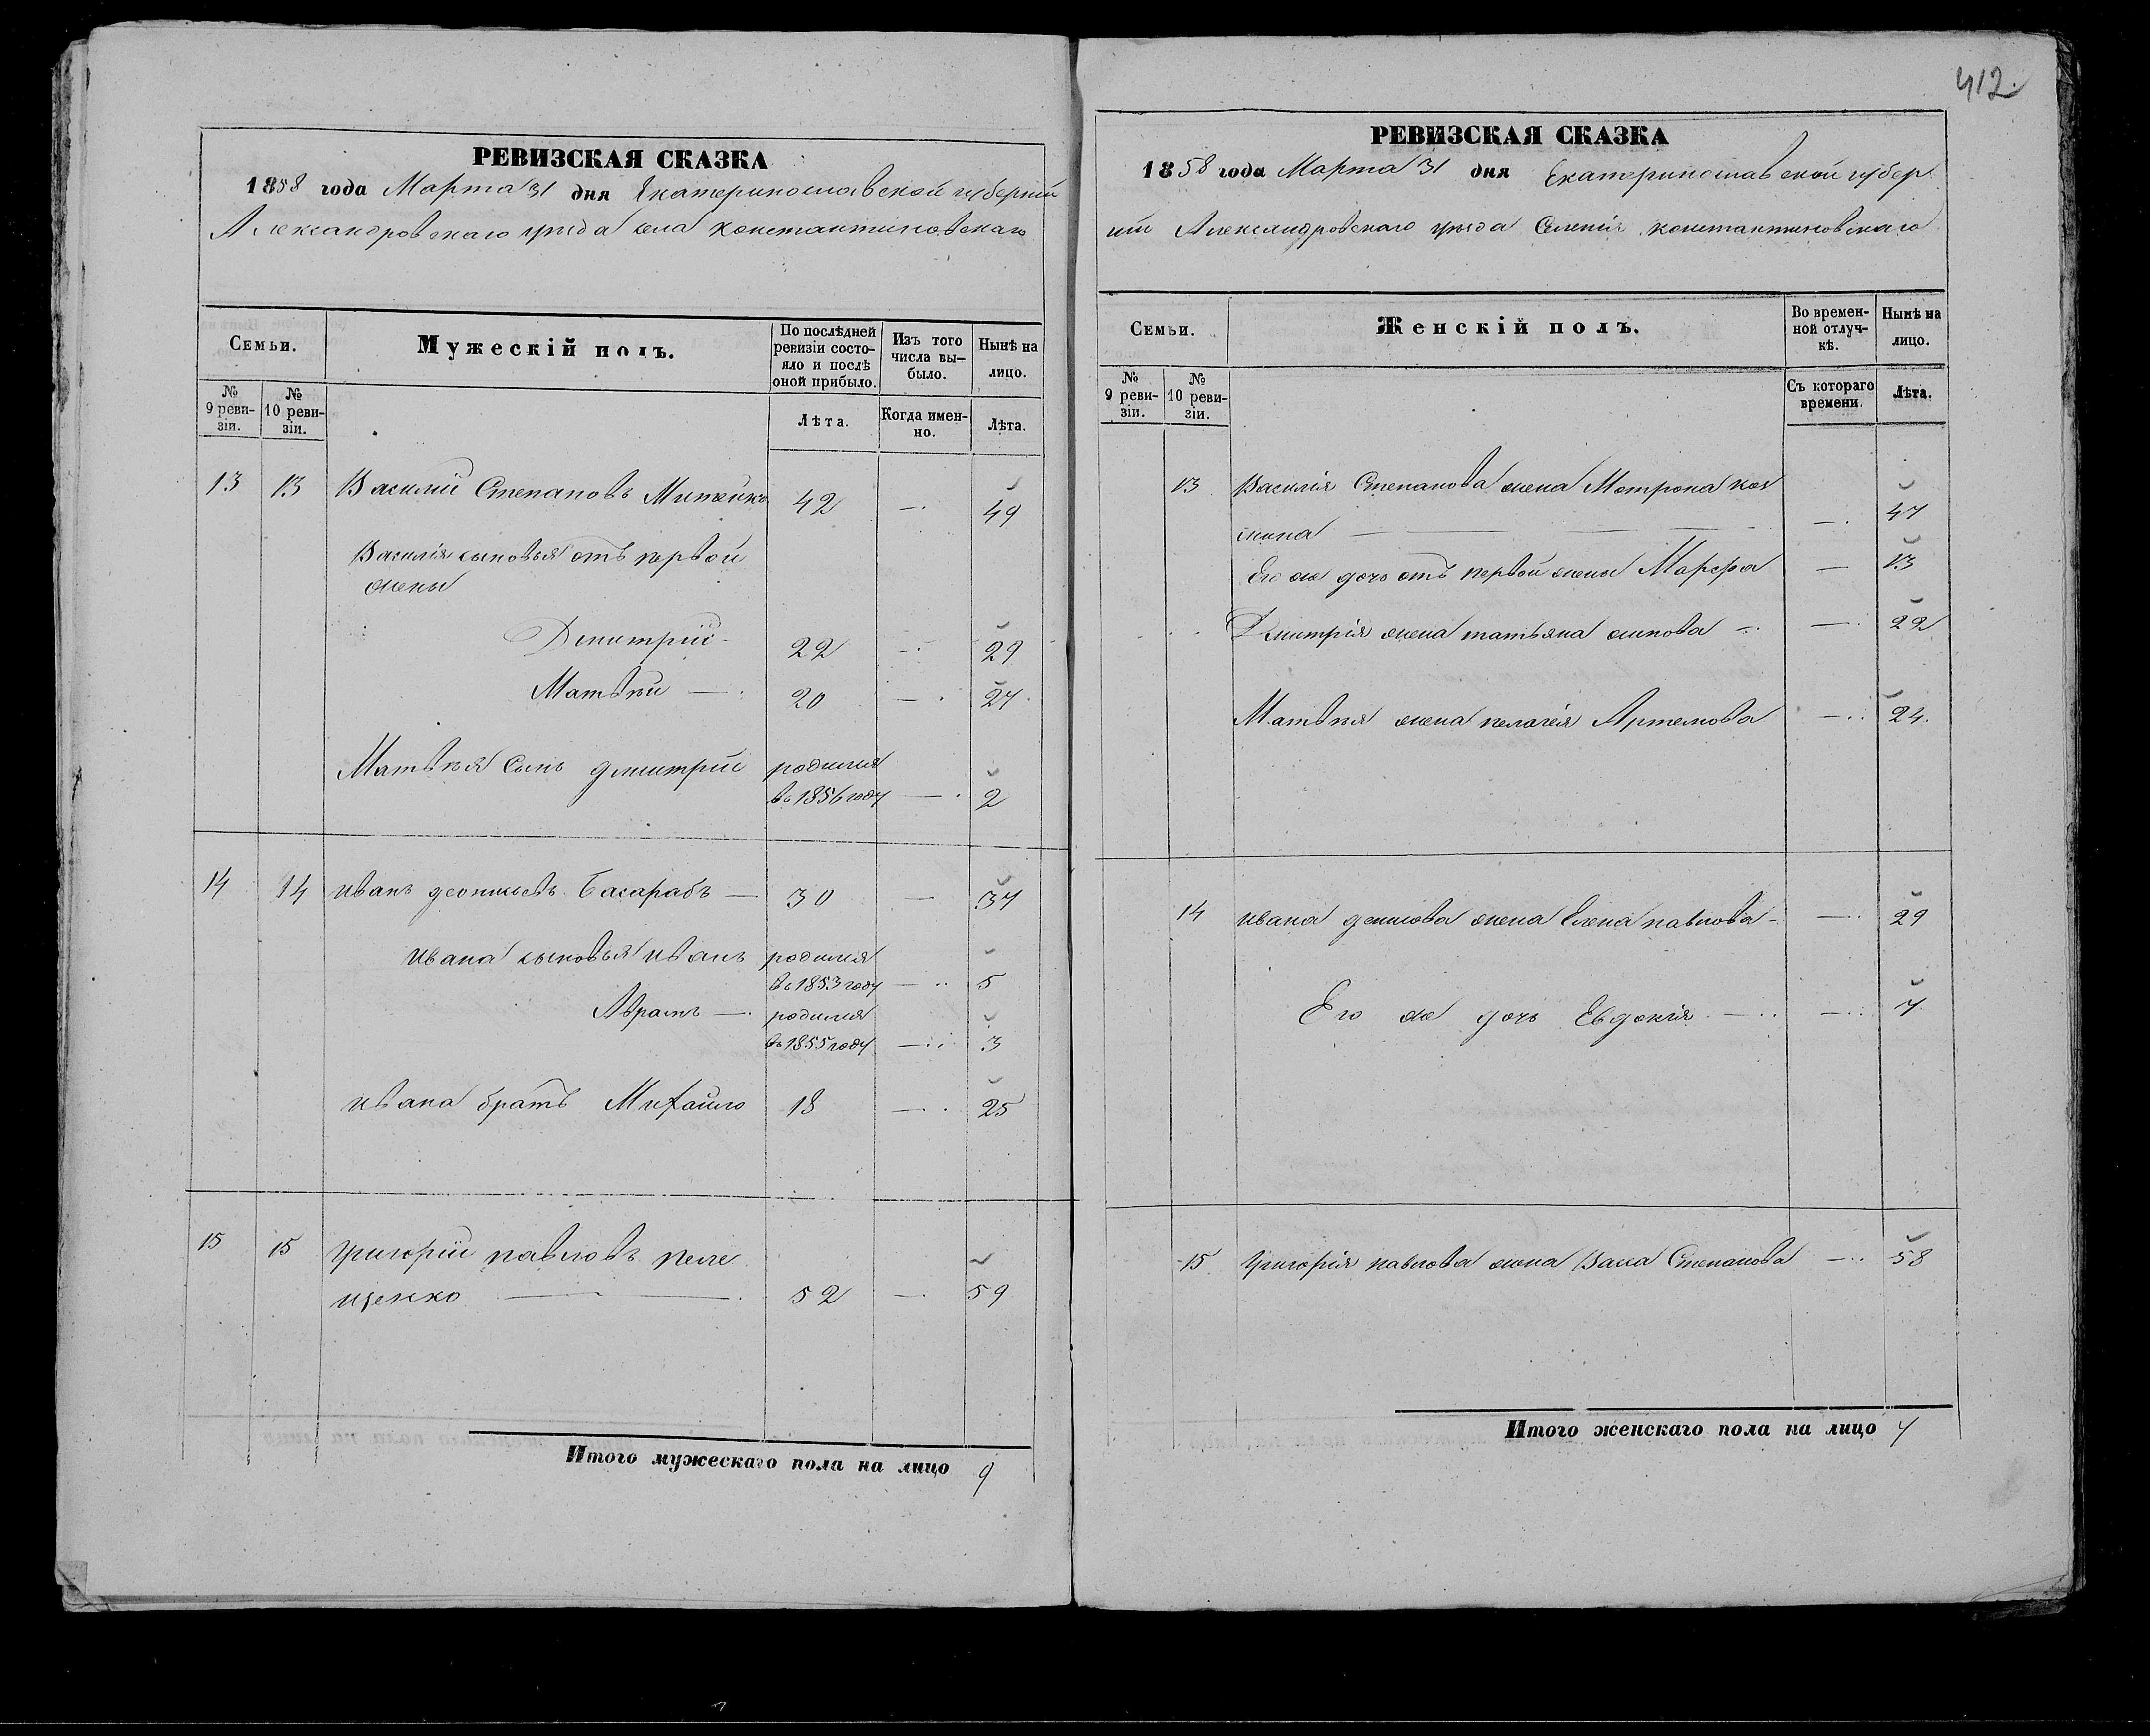 412.
РЕВИЗСКАЯ СКАЗКА
1858 года Марта 31 дня Екатеринославской губерніи
Александровскаго уѣзда села Константиновскаго
Семьи.
Мужескій полъ.
По послѣдней ревизіи состояло и послѣ оной прибыло.
Изъ того числа выбыло.
Нынѣ на лицо.
№ 9 ревизіи.
№ 10 ревизіи.
Лѣта.
Когда именно.
Лѣта.
13 13 Василій Степановъ 42 — 49
Василія сыновья отъ первой
жены
Дмитрій 22 — 29
Матвѣй — 20 — 27
Матвѣя сынъ дмитрій родился
въ 1856 году — 2
14 14 иванъ Басарабъ — 30 — 37
ивана сыновья иванъ родился
въ 1853 году — 5
Абрамъ — родился
въ 1855 году — 3
ивана братъ Михайло 18 — 25
15 15 григорій павловъ пеле
щенко — — 52 — 59
Итого мужескаго пола на лицо 9
РЕВИЗСКАЯ СКАЗКА
1858 года Марта 31 дня Екатеринославской губер
ніи Александровскаго уѣзда Селенія константиновскаго
Семьи.
Женскій полъ.
Во временной отлучкѣ.
Нынѣ на лицо.
№ 9 ревизіи.
№ 10 ревизіи.
Съ котораго времени.
Лѣта.
13 Василія Степанова жена Матрона коз
мина — — — — 47
Его же дочь отъ первой жены Марфа — 13
Дмитрія жена татьяна — — 22
Матвѣя жена пелагея Артемова — 24.
14 ивана денисова жена Елена павлова — — 29
Его же дочь Евдокія — — 7
15 григорія павлова жена Васса Степанова — 58
Итого женскаго пола на лицо 7